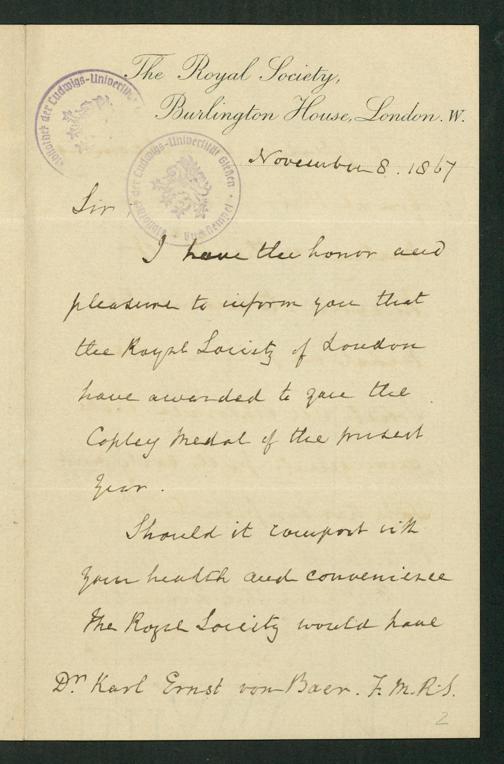 The Royal Society,
Burlington House, London. W.
November 8. 1867
Sir,
I have the honor and
pleasure to inform you that
the Royal Society of London
have awarded to you the
Copley Medal of the present
year.
Should it comport with
your health and convenience
the Royal Society would have
Dr Karl Ernst von Baer. F.M.R.S.
2
Bibliothek der Ludwigs-Universität
Bibliothek der Ludwigs-Universität Gießen